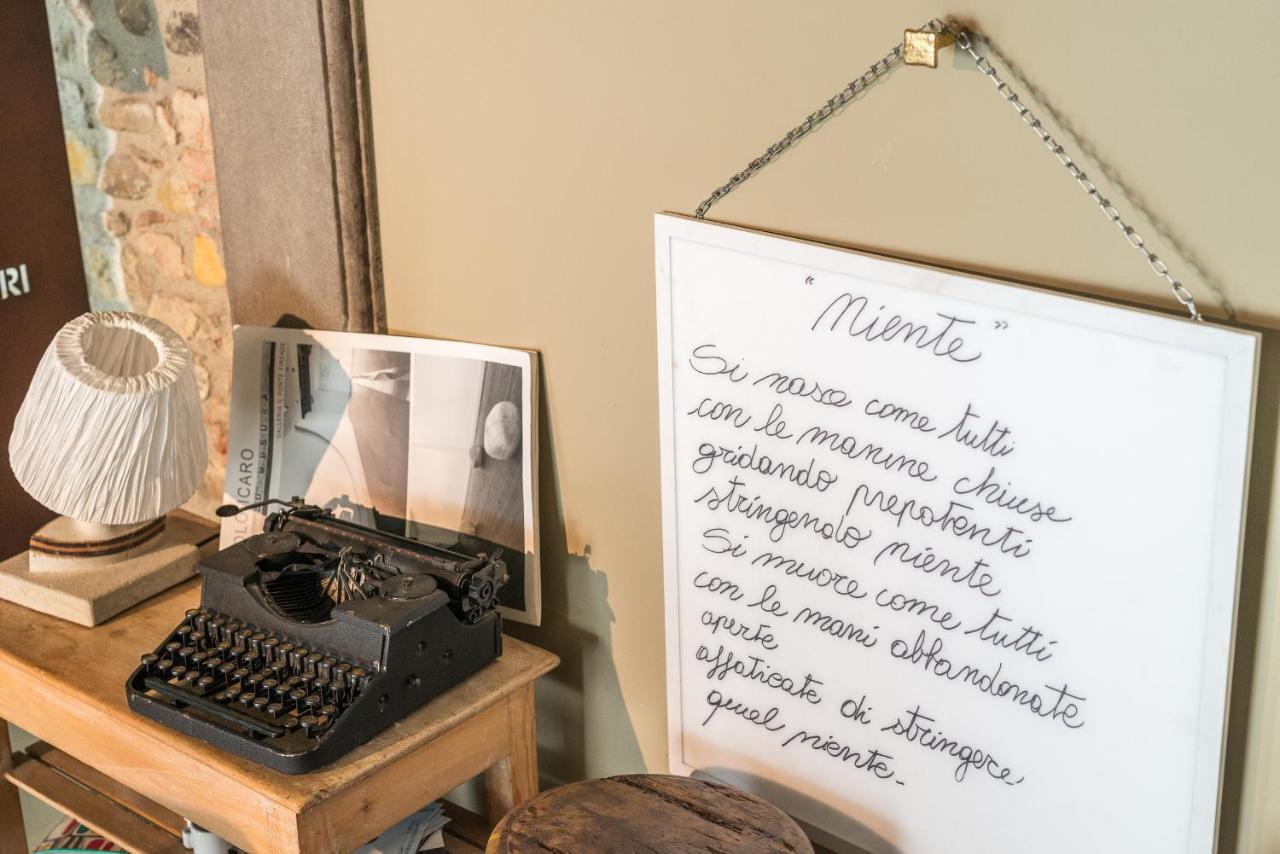 RI
OLO ICARO
MISURA
GALLERIA IL PONTE FIRENZE
“Niente”
Si nasce come tutti
con le manine chiuse
gridando prepotenti
stringendo niente
Si muore come tutti
con le mani abbandonate
aperte
affaticate di stringere,
quel niente.